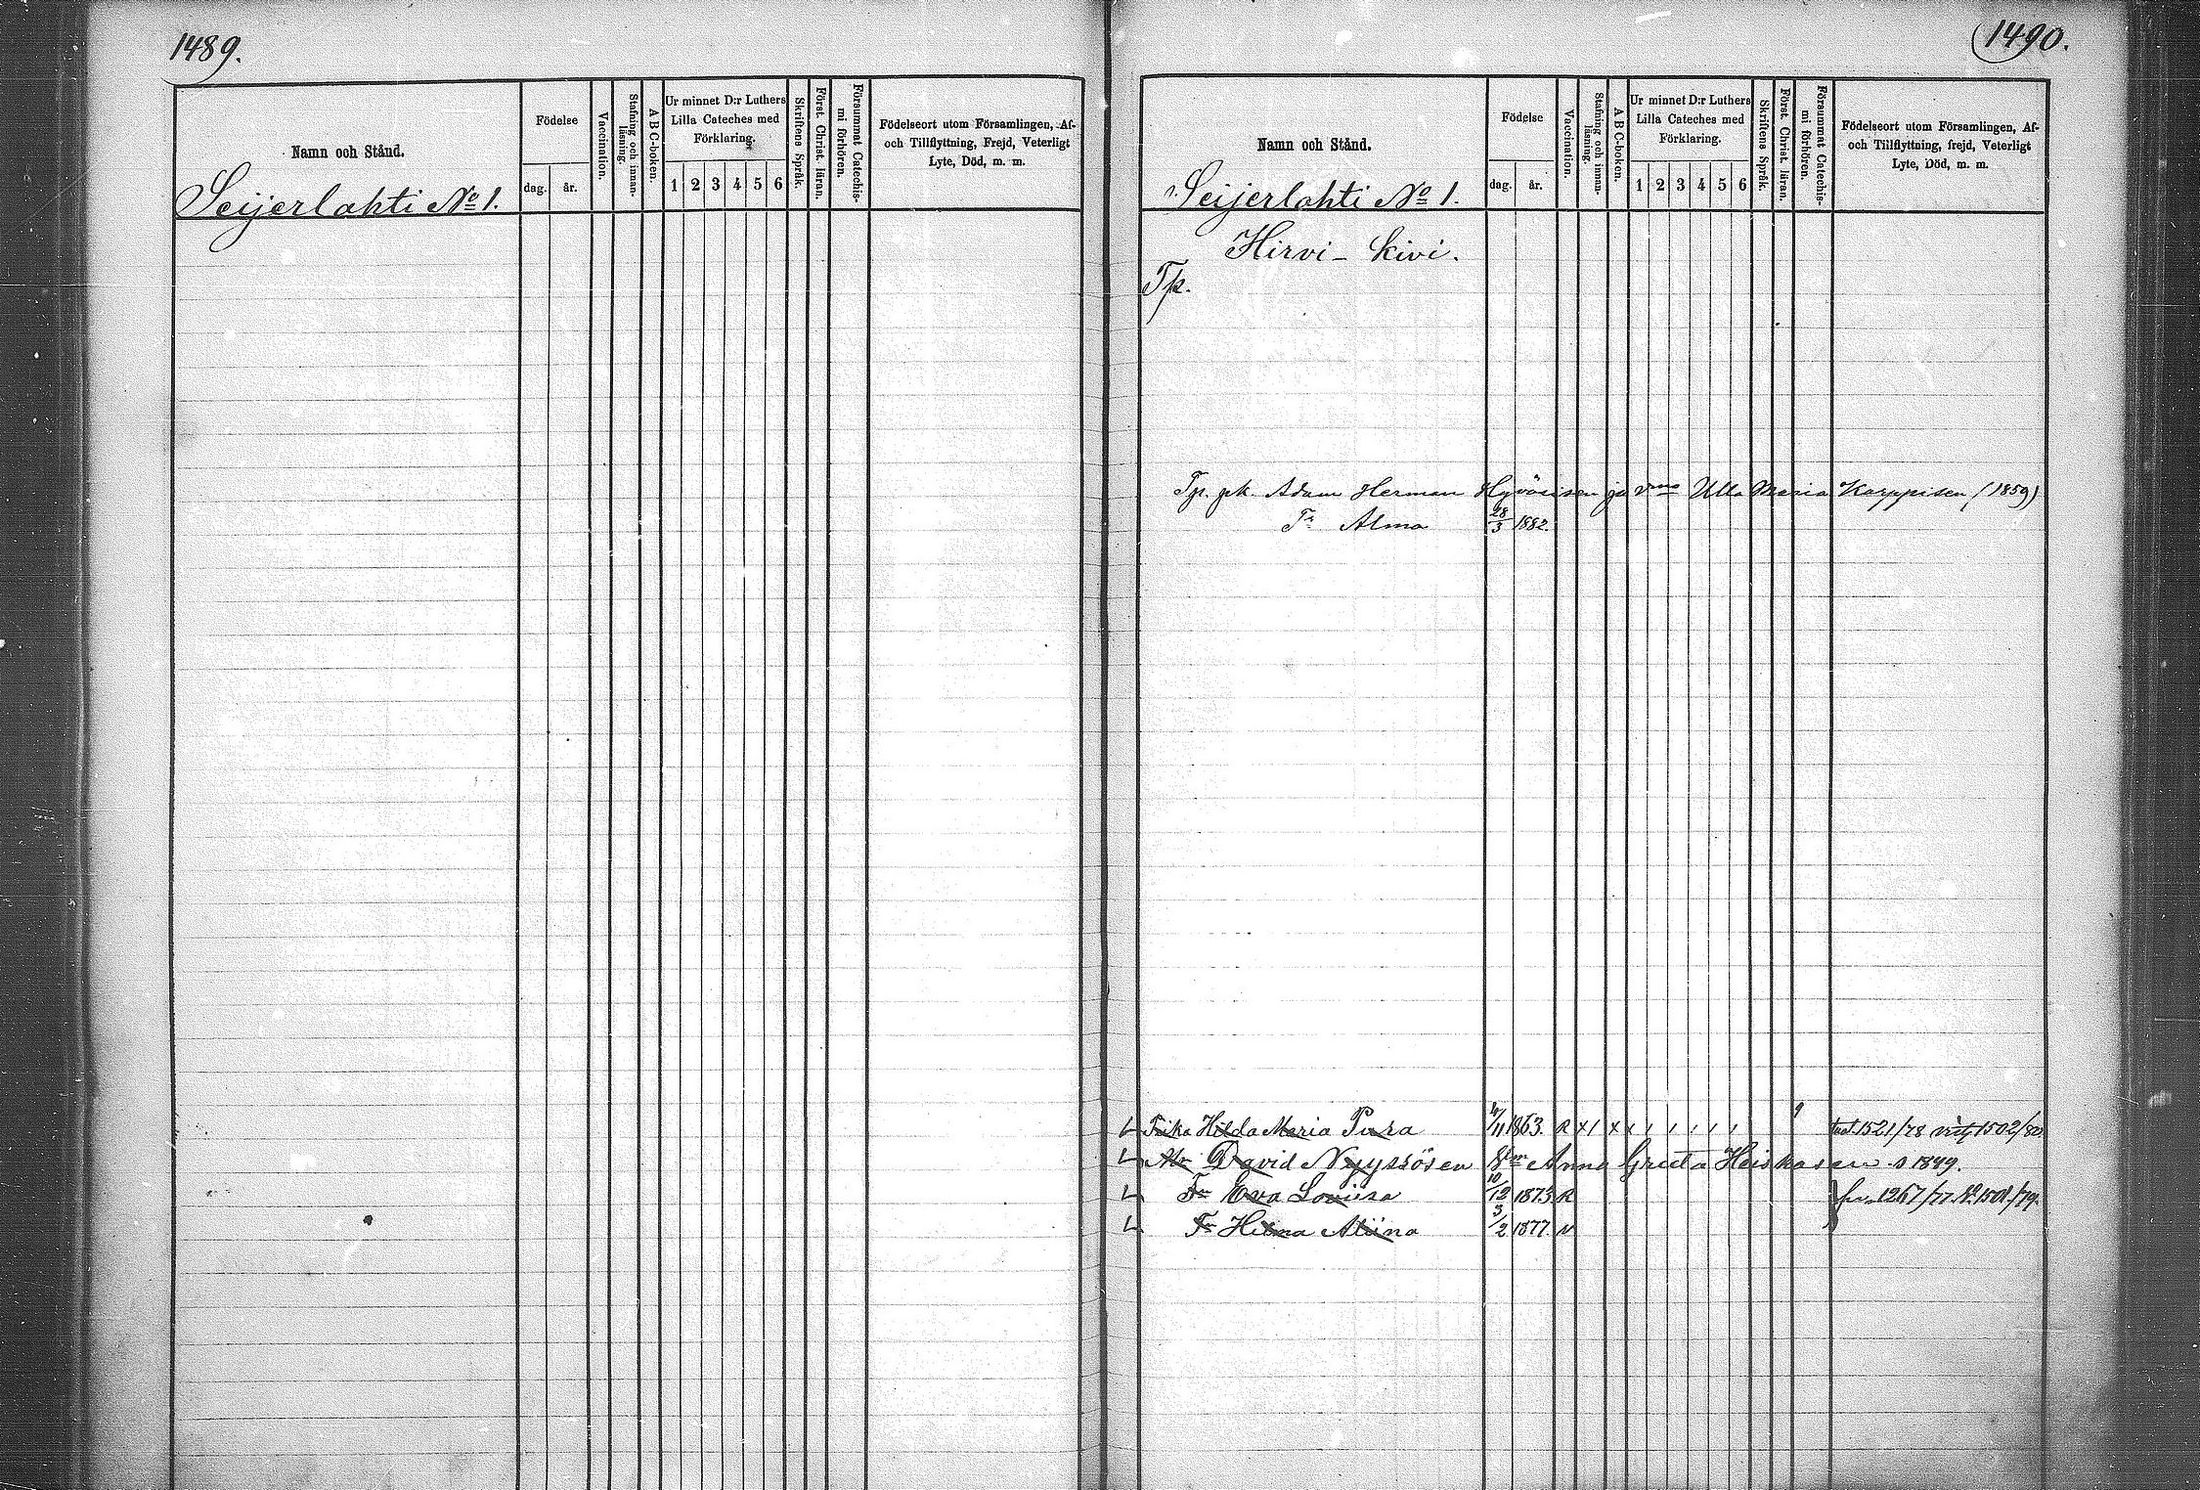 1489.
Namn och Stånd.
Födelse
dag.
år.
Vaccination.
Stafning och innan-
läsning.
A B C-boken.
Ur minnet D:r Luthers
Lilla Cateches med
Förklaring.
1 2 3 4 5 6
Skriftens Språk.
Först. Christ. läran.
Försummat Catechis-
mi förhören.
Födelseort utom Församlingen, Af-
och Tillflyttning, Frejd, Veterligt
Lyte, Död, m. m.
Seijerlahti No 1.
1490.
Namn och Stånd.
Födelse
dag.
år.
Vaccination.
Stafning och innan-
läsning.
A B C-boken.
Ur minnet D:r Luthers
Lilla Cateches med
Förklaring.
1 2 3 4 5 6
Skriftens Språk.
Först. Christ. läran.
Försummat Catechis-
mi förhören.
Födelseort utom Församlingen, Af-
och Tillflyttning, frejd, Veterligt
Lyte, Död, m. m.
Seijerlahti No 1.
Hirvi-kivi.
Tp.
Tp. Adam Herman Hyvösisen ja Ulla Maria Karppisen (1859)
Tr Alma 28/3 1882.
Hilda Maria Pura /11 1863. R X I X 1521/78 1502/80
David Nyyssösen Anna Greeta Heiskasen s 1849.
Tr Eva Loviisa 10/12 1873 R 1267/77. No 1501/79.
Tr Hilma Aliina 3/2 1877. N